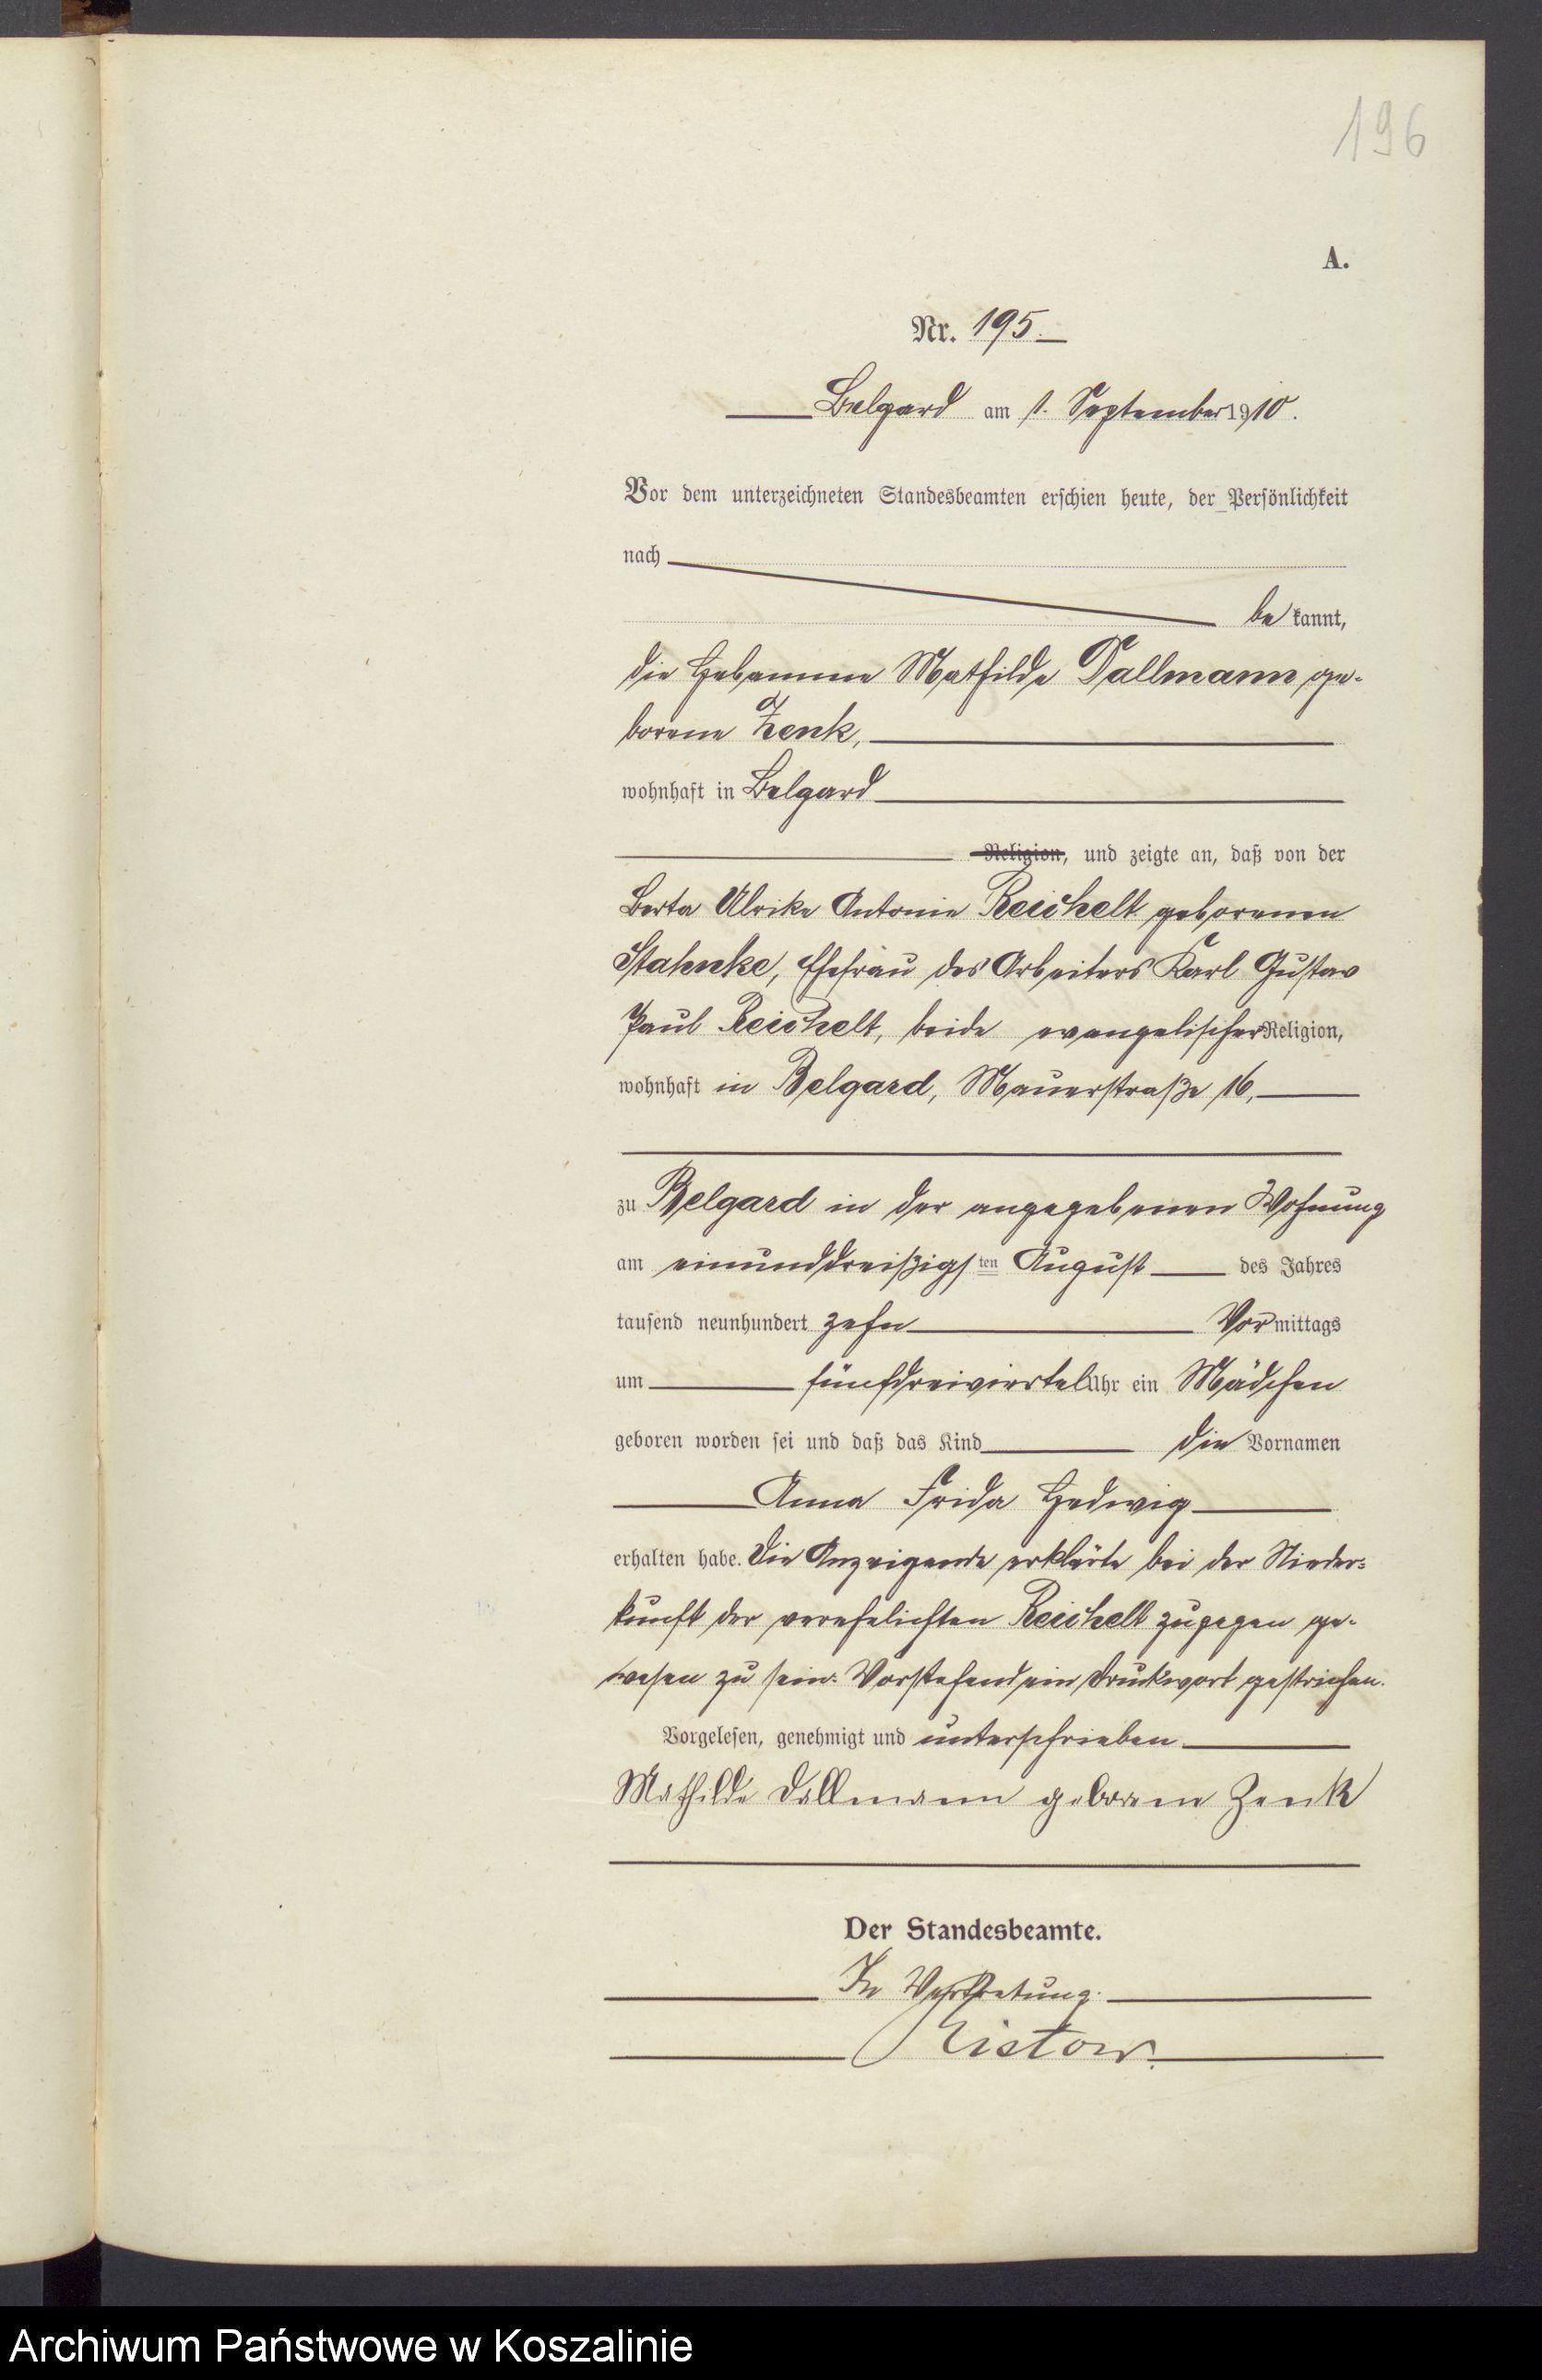 196
A.
Nr. 195.
Belgard am 1. September 1910.
Vor dem unterzeichneten Standesbeamten erschien heute, der Persönlichkeit
nach
be kannt,
die Hebamme Mathilde Dallmann ge-
borene Zenk,
wohnhaft in Belgard
Religion, und zeigte an, daß von der
Berta Ulrike Antonie Reichelt geborenen
Stahnke, Ehefrau des Arbeiters Karl Gustav
Paul Reichelt, beide evangelischer Religion,
wohnhaft in Belgard, Mauerstraße 16,
zu Belgard in der angegebenen Wohnung
am einunddreißigsten August des Jahres
tausend neunhundert zehn Vormittags
um fünfdreiviertel Uhr ein Mädchen
geboren worden sei und daß das Kind die Vornamen
Anna Frida Hedwig
erhalten habe. Die Anzeigende erklärte bei der Nieder-
kunft der verehelichten Reichelt zugegen ge-
wesen zu sein. Vorstehend ein Druckwort gestrichen.
Vorgelesen, genehmigt und unterschrieben
Mathilde Dallmann geborene Zenk
Der Standesbeamte.
In Vertretung.
Ristow.
Archiwum Państwowe w Koszalinie